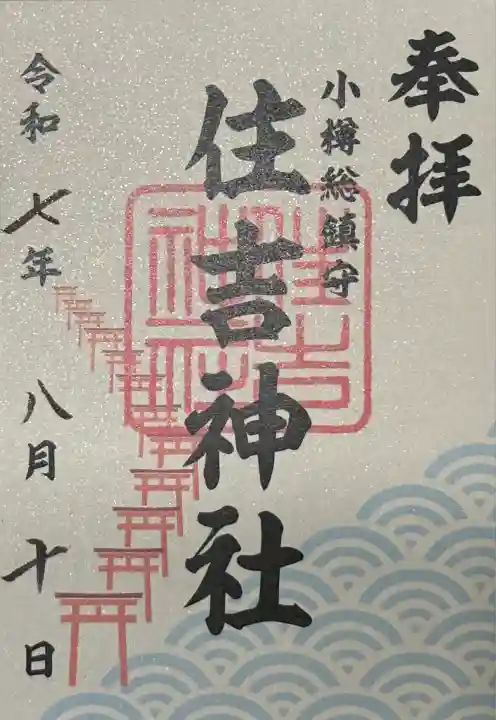 奉拝
小樽総鎮守
住吉神社
住吉神社
令和七年八月十日